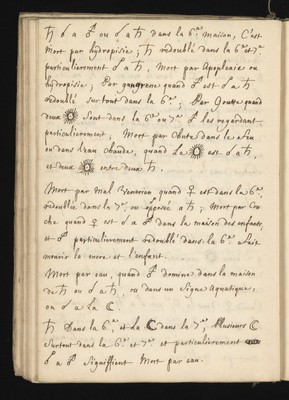 ♄ ☌ a ♂ ou ☌ a ♄ dans la 6.e maison, C'est
Mort par hydropisie; ♄ redoublé dans la 6.e et 7.e
particulierement ☌ a ♄, Mort par Apoplexie ou
hydropisie; Par gangrene quand ♂ est ☌ a ♄
redoublé surtout dans la 6.e; Par Goute quand
deux ☉ Sont dans la 6.e ou 7.e ♂ les regardant
particulierement, Mort par chute dans le feu
ou dans l'eau chaude, quand Le ☉ est ☌ a ♄,
et deux ☉ entre deux ♄.
Mort par mal Venerien quand ♀ est dans la 6.e,
redoublée dans la 7.e ou opposée a ♄; Mort par Cou
che quand ♀ est ☌ a ♂ dans la maison des enfants,
et ♂ particulierement redoublé dans la 6.e fait
mourir la mere et l'enfant.
Mort par eau, quand ♂ domine dans la maison
de ♄ ou ☌ a ♄, ou dans un Signe Aquatique,
ou ☌ a la ☾.
♄ Dans la 6.e et la ☾ dans la 7.e, Plusieurs ☾
Surtout dans la 6.e et 7.e et particulierement
☌ a ♂ Signiffient Mort par eau.